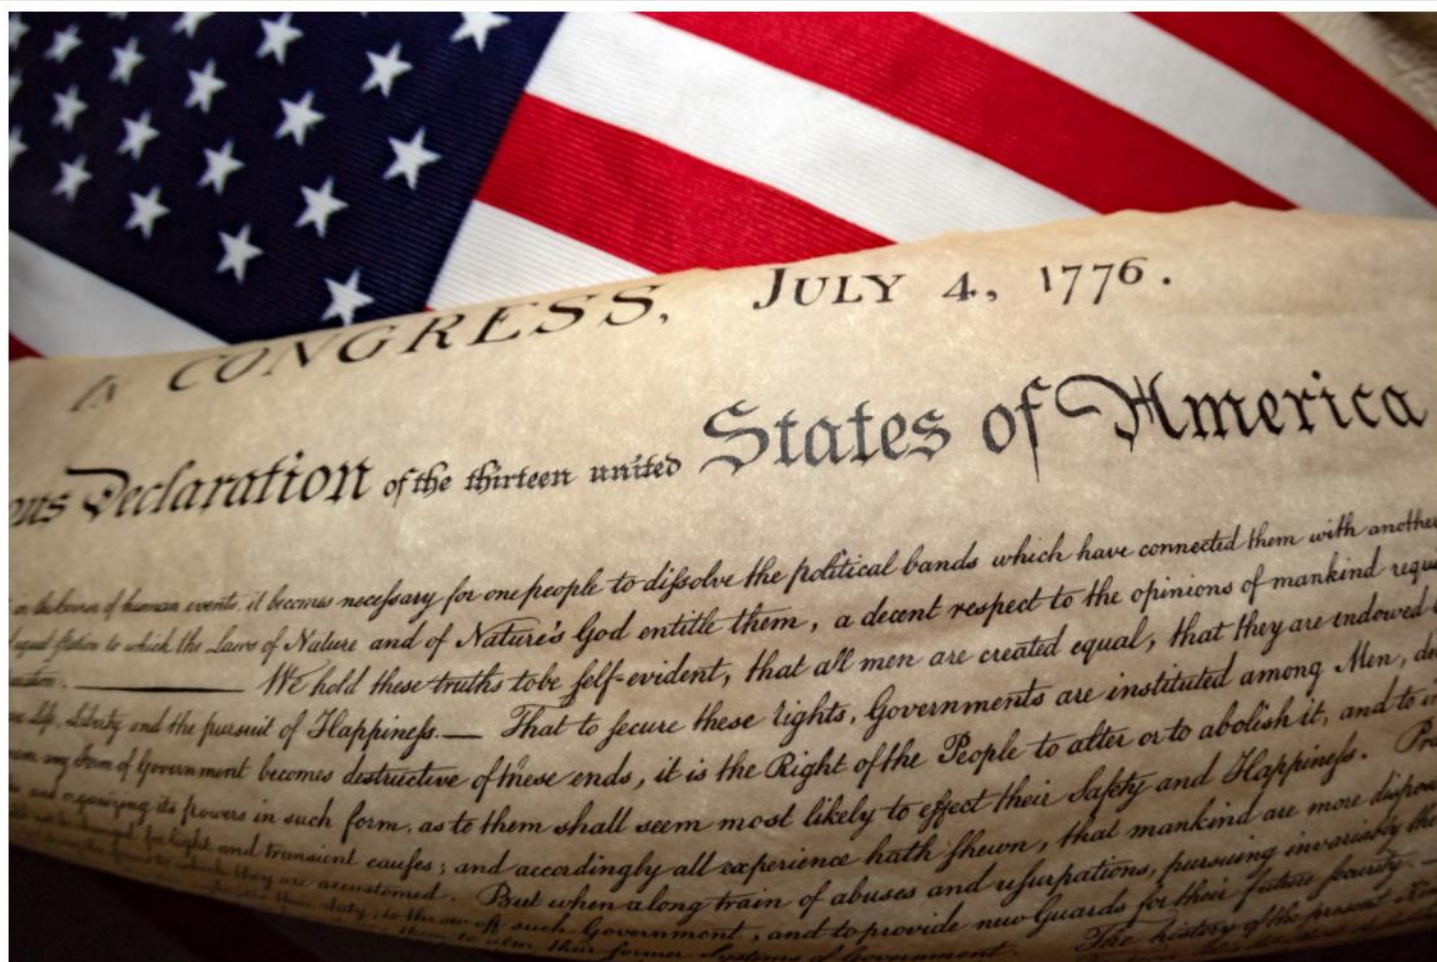 CONGRESS, JULY 4, 1776.
Declaration of the thirteen united States of America
of human events, it becomes necessary for one people to dissolve the political bands which have connected them with another
equal station to which the Laws of Nature and of Nature's God entitle them, a decent respect to the opinions of mankind
We hold these truths to be self-evident, that all men are created equal, that they are endowed
Life, Liberty and the pursuit of Happiness. — That to secure these rights, Governments are instituted among Men,
any Form of Government becomes destructive of these ends, it is the Right of the People to alter or to abolish it, and to
and organizing its powers in such form, as to them shall seem most likely to effect their Safety and Happiness.
for light and transient causes; and accordingly all experience hath shewn, that mankind are more
they are accustomed. But when a long train of abuses and usurpations, pursuing invariably the
their duty, to throw off such Government, and to provide new Guards for their future security. —
to alter their former Systems of Government. The history of the present